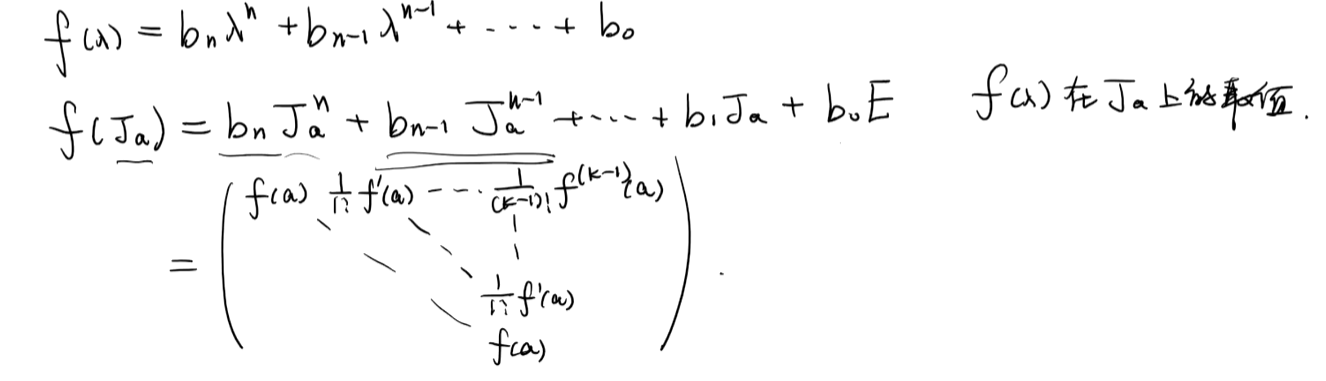 f(λ) = bₙλⁿ + bₙ₋₁λⁿ⁻¹ + ---- + b₀
f(Jₐ) = bₙJₐⁿ + bₙ₋₁Jₐⁿ⁻¹ + --- + b₁Jₐ + b₀E f(λ) 在 Jₐ 上的取值.
f(a) 1/1! f'(a) --- 1/(k-1)! f⁽ᵏ⁻¹⁾(a)
=
1/1! f'(a)
f(a)